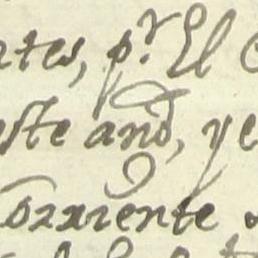 rtes, p.r El
este año, ye
Corriente